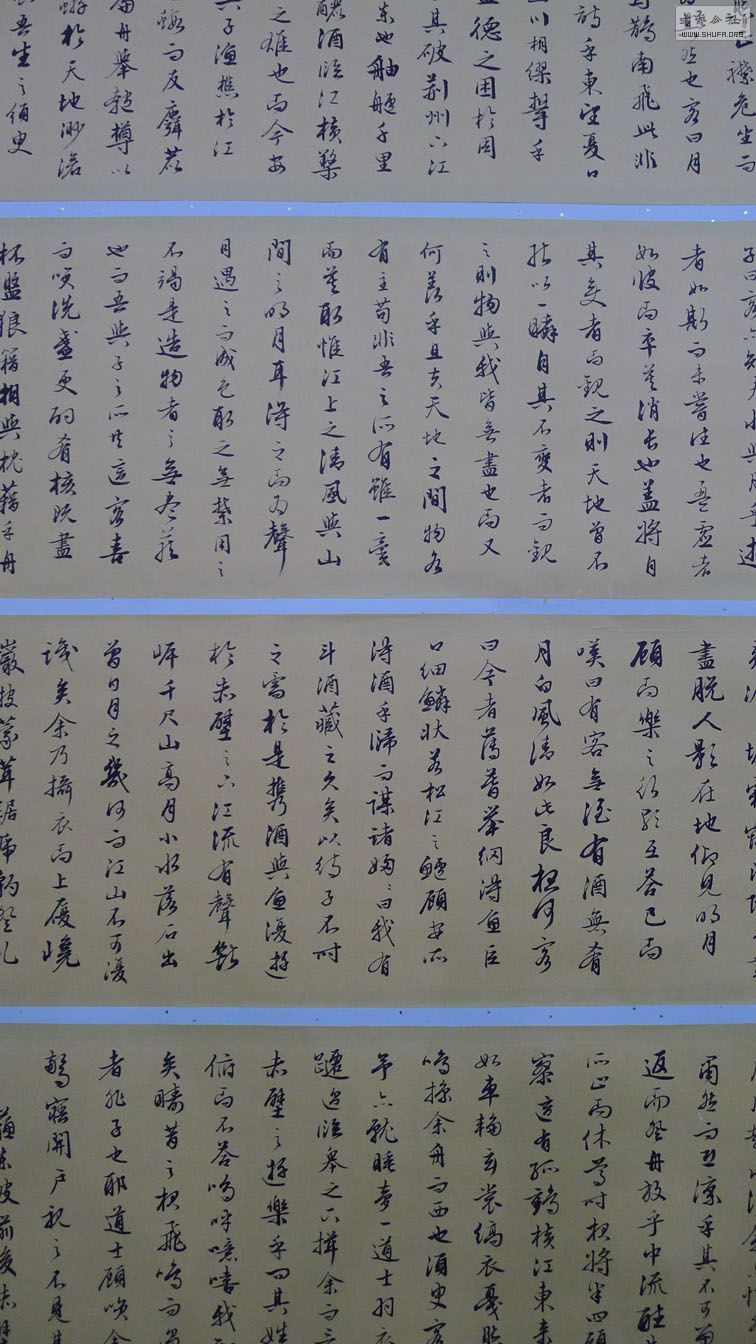 襟危坐而
也客曰月
鵲南飛此非
詩乎東望夏口
川相繆鬱乎
孟德之困於周
其破荊州下江
東也舳艫千里
釃酒臨江橫槊
之雄也而今安
與子漁樵於江
而友麋鹿
扁舟舉匏樽以
蝣於天地渺滄
哀吾生之須臾
子曰客亦知夫水與月乎逝
者如斯而未嘗往也盈虛者
如彼而卒莫消長也蓋將自
其變者而觀之則天地曾不
能以一瞬自其不變者而觀
之則物與我皆無盡也而又
何羨乎且夫天地之間物各
有主苟非吾之所有雖一毫
而莫取惟江上之清風與山
間之明月耳得之而為聲
目遇之而成色取之無禁用之
不竭是造物者之無盡藏
也而吾與子之所共適客喜
而笑洗盞更酌肴核既盡
杯盤狼籍相與枕藉乎舟
盡脫人影在地仰見明月
顧而樂之行歌互答已而
嘆曰有客無酒有酒無肴
月白風清如此良夜何客
曰今者薄暮舉網得魚巨
口細鱗狀若松江之鱸顧安所
得酒乎歸而謀諸婦婦曰我有
斗酒藏之久矣以待子不時
之需於是攜酒與魚復遊
於赤壁之下江流有聲斷
岸千尺山高月小水落石出
曾日月之幾何而江山不可復
識矣余乃攝衣而上履巉
巖披蒙茸踞虎豹登虬
肅然而恐凜乎其不可
返而登舟放乎中流聽
所止而休焉時夜將半四顧
寥適有孤鶴橫江東來
如車輪玄裳縞衣戛然
鳴掠余舟而西也須臾客
予亦就睡夢一道士羽衣
躚過臨皋之下揖余而言
赤壁之遊樂乎問其姓
俯而不答嗚呼噫嘻我
矣疇昔之夜飛鳴而過
者非子也耶道士顧笑余
驚寤開戶視之不見其
蘇東坡前後赤壁
WWW.SHUFA.ORG